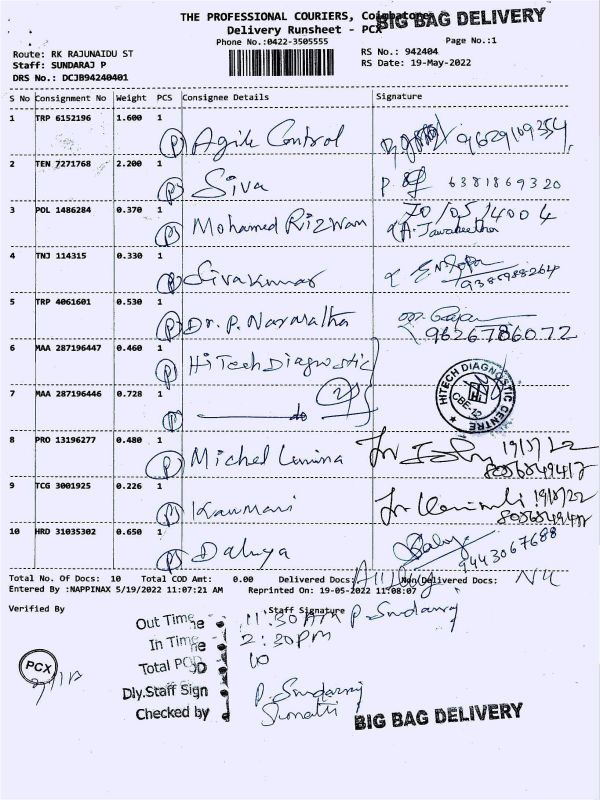 THE PROFESSIONAL COURIERS, Coimbatore
BIG BAG DELIVERY
Delivery Runsheet - PCX
Phone No.:0422-3505555
Page No.:1
Route: RK RAJUNAIDU ST
Staff: SUNDARAJ P
DRS No.: DCJB94240401
RS No.: 942404
RS Date: 19-May-2022
S No Consignment No Weight PCS Consignee Details Signature
1 TRP 6152196 1.600 1 P Agile Control 9629109354
2 TEN 7271768 2.200 1 P Siva P. 6381869320
3 POL 1486284 0.370 1 P Mohamed Rizwan 70/05/4004
A. Jawaheetha
4 TNJ 114315 0.330 1 P Sivakumar 9385988264
5 TRP 4061601 0.530 1 P Dr. P. Navaratha 9626786072
6 MAA 287196447 0.460 1 P HiTech Diagnostic
7 MAA 287196446 0.728 1 P do 2
HITECH DIAGNOSTIC CENTRE
CBE-12
8 PRO 13196277 0.480 1 P Michel Lenina 19/5/22
8056849417
9 TCG 3001925 0.226 1 P Kanmani 19/5/22
10 HRD 31035302 0.650 1 P Dahya 9443067688
Total No. Of Docs: 10 Total COD Amt: 0.00 Delivered Docs: Non Delivered Docs: Nil
Entered By :NAPPINAX 5/19/2022 11:07:21 AM Reprinted On: 19-05-2022 11:08:07
Verified By Staff Signature P. Sundarraj
Out Time 11:30 AM
In Time 2:30PM
Total POD 10
PCX
Dly.Staff Sign P. Sundarraj
Checked by
BIG BAG DELIVERY